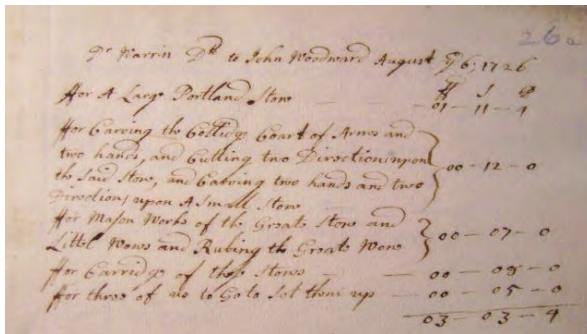 26
Dr Warrin Dr to John Woodward August ye 6, 1726
ll S D
ffor A Large Portland Stone 01 – 11 – 4
ffor Carving the Colledge Coart of Armes and
two hands, and Cutting two Directions upon
the Said Stone, and Carving two hands and two 00 – 12 – 0
Directions upon A Small Stone
ffor Mason Works of the Greate Stone and
Littel Wone and Rubing the Greate Wone 00 – 07 – 0
ffor Carridge of these Stones 00 – 08 – 0
ffor three of us to Go to Set them up 00 – 05 – 0
03 – 03 – 4